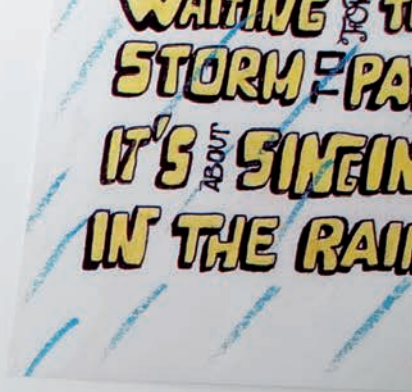 WAITING FOR T
STORM TO PA
IT'S ABOUT SINGIN
IN THE RAI